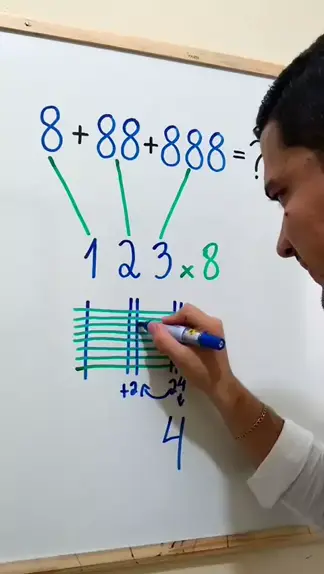 8+88+888=?
123×8
+2 24
4